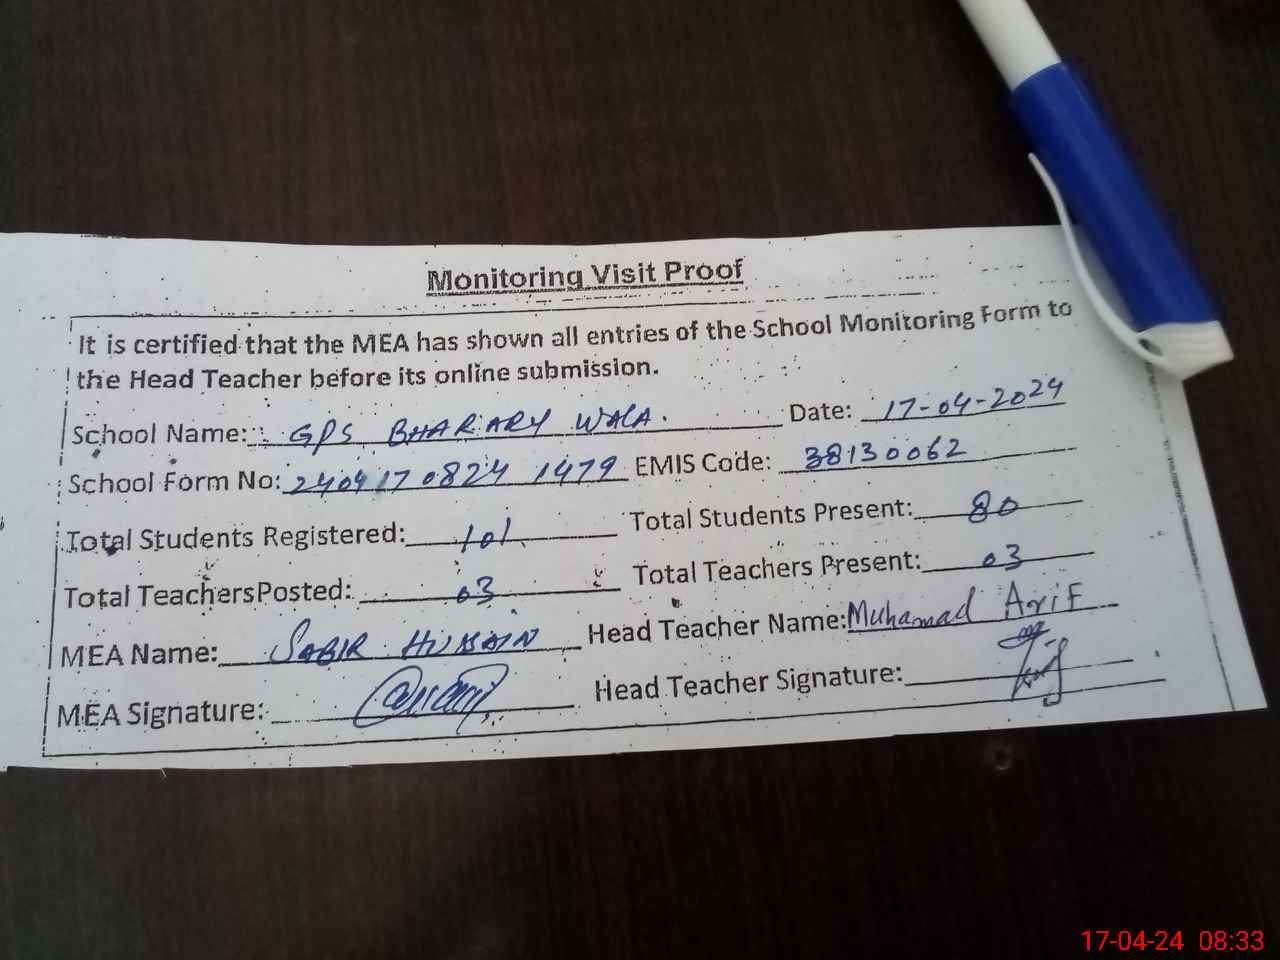 Monitoring Visit Proof
It is certified that the MEA has shown all entries of the School Monitoring Form to
the Head Teacher before its online submission.
School Name: GPS BHARARY WALA. Date: 17-04-2024
School Form No: 2404170824 1479 EMIS Code: 38130062
Total Students Registered: 101 Total Students Present: 80
Total Teachers Posted: 03 Total Teachers Present: 03
MEA Name: SABIR HUSAIN Head Teacher Name: Muhamad Arif
MEA Signature: Head Teacher Signature:
17-04-24 08:33